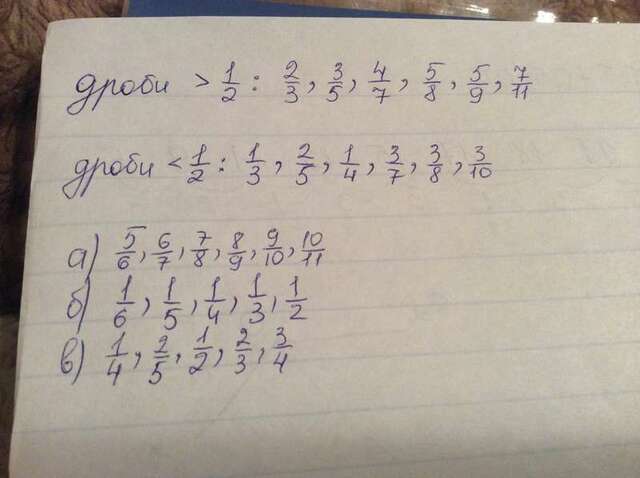 дроби > 1/2 : 2/3, 3/5, 4/7, 5/8, 5/9, 7/11
дроби < 1/2 : 1/3, 2/5, 1/4, 3/7, 3/8, 3/10
а) 5/6, 6/7, 7/8, 8/9, 9/10, 10/11
б) 1/6, 1/5, 1/4, 1/3, 1/2
в) 1/4, 2/5, 1/2, 2/3, 3/4